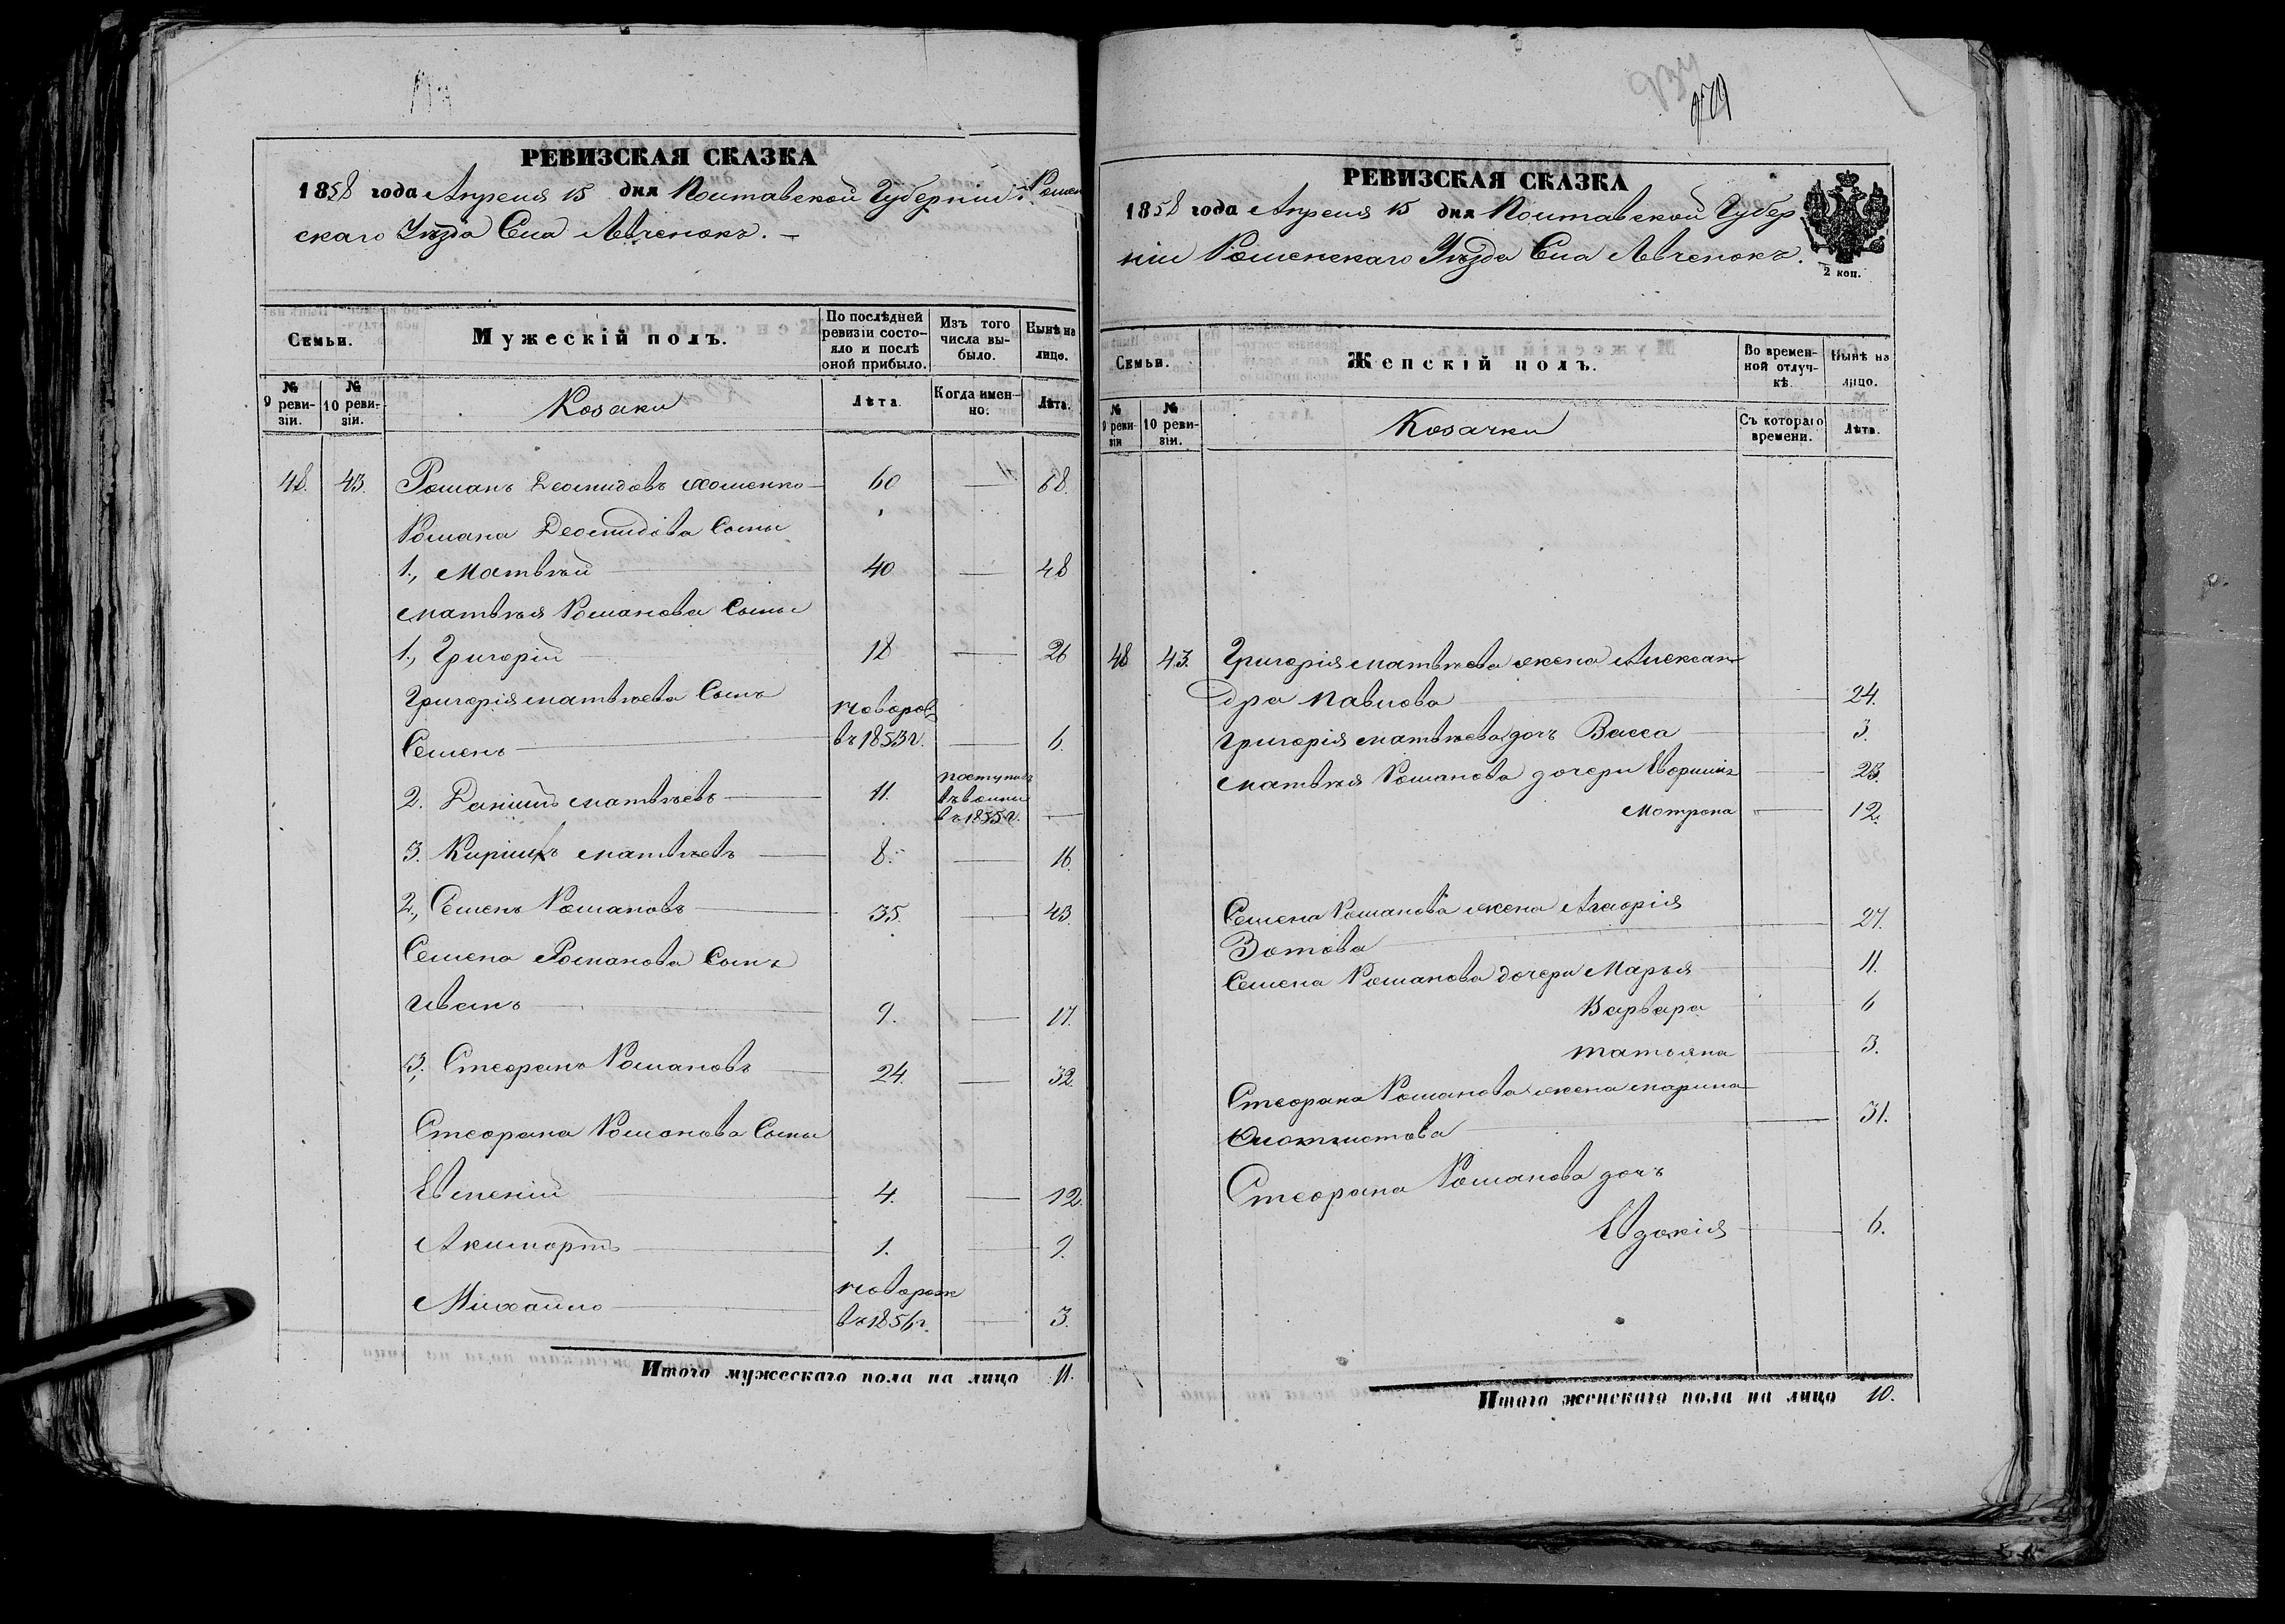 РЕВИЗСКАЯ СКАЗКА
1858 года Апреля 15 дня Полтавской Губерніи Ромен
скаго Уѣзда Села Лѣвченокъ.
Семьи.
Мужескій полъ.
По послѣдней ревизіи состояло и послѣ оной прибыло.
Изъ того числа выбыло.
Нынѣ на лицо.
№ 9 ревизіи.
№ 10 ревизіи.
Козаки
Лѣта.
Когда именно.
Лѣта.
48. 43. Романъ Деомидовъ 60 — 68.
Романа Деомидова Сыны
1., Матвѣй 40 — 48
Матвѣя Романова Сыны
1., Григорій 18 — 26
Григорія Матвѣева Сынъ
новорож
Семенъ въ 1853 г. — 6.
2. Даніилъ Матвѣевъ 11. поступилъ
въ 1855 г. —
3. Кирилъ Матвѣевъ 8. — 16.
2., Семенъ Романовъ 35. — 43.
Семена Романова Сынъ
Иванъ 9. — 17.
3. Стефанъ Романовъ 24. — 32.
Стефана Романова Сыны
Евменій 4. — 12.
1. — 9.
новорож
Михайло въ 1856 г. — 3.
Итого мужескаго пола на лицо 11.
РЕВИЗСКАЯ СКАЗКА
1858 года Апреля 15 дня Полтавской Губер
ніи Роменскаго Уѣзда Села Лѣвченокъ.
2 коп.
Семьи.
Женскій полъ.
Во временной отлучкѣ.
Нынѣ на лицо.
№ 9 ревизіи
№ 10 ревизіи.
Козачки
Съ котораго времени.
Лѣта.
48 43. Григорія Матвѣева жена Алексан
дра Павлова — 24.
Григорія Матвѣева дочь Васса — 3.
Матвѣя Романова дочери — 23.
Мотрона — 12.
Семена Романова жена Глафрія
Зотова — 27.
Семена Романова дочери Марья 11.
Варвара 6
Татьяна 3.
Стефана Романова жена Марина
— 31.
Стефана Романова дочь
Евдокія 6.
Итого женскаго пола на лицо 10.